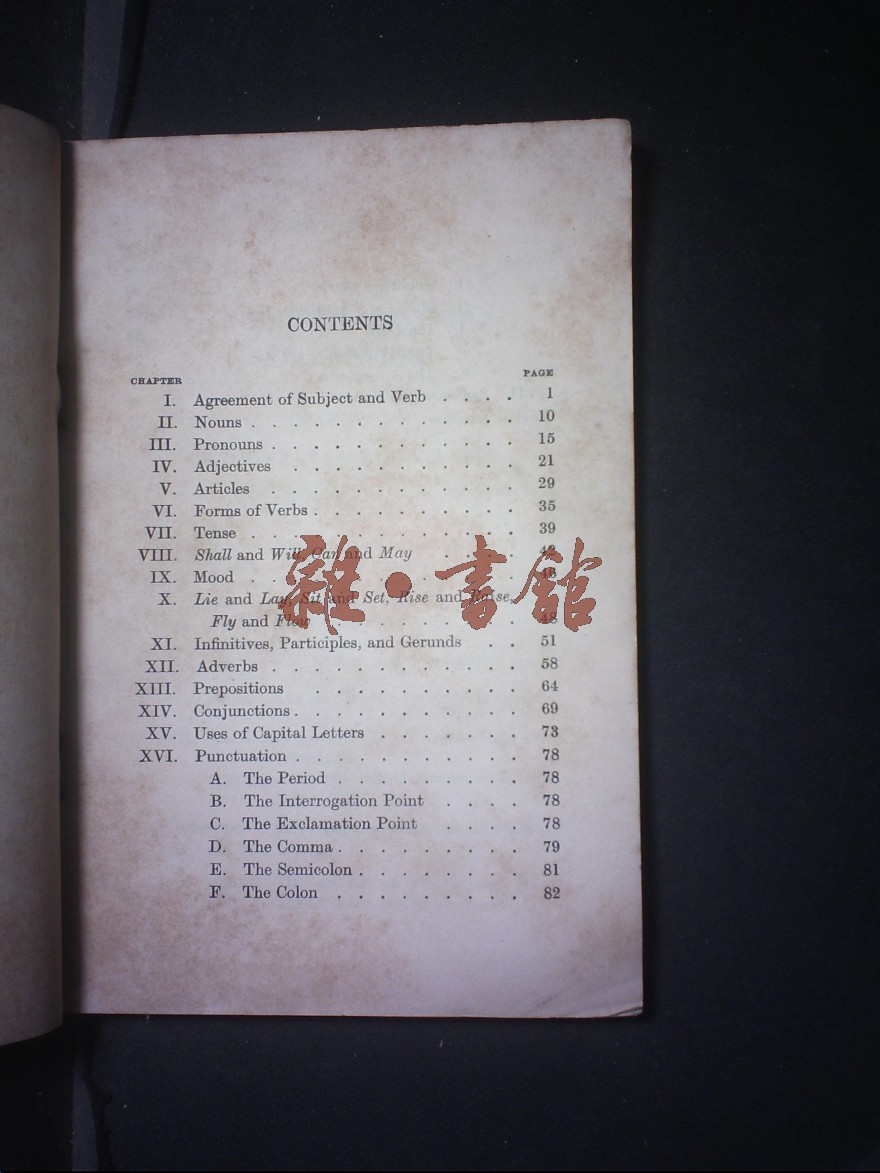 CONTENTS
CHAPTER PAGE
I. Agreement of Subject and Verb . . . . 1
II. Nouns . . . . . . . . . . . . . 10
III. Pronouns . . . . . . . . . . . . 15
IV. Adjectives . . . . . . . . . . . 21
V. Articles . . . . . . . . . . . . 29
VI. Forms of Verbs . . . . . . . . . . 35
VII. Tense . . . . . . . . . . . . . 39
VIII. Shall and Will, Can and May . . . .
IX. Mood . . . . . . . . . . . . .
X. Lie and Lay, Sit and Set, Rise and Raise,
Fly and Flow . . . . . . . . . 48
XI. Infinitives, Participles, and Gerunds . . 51
XII. Adverbs . . . . . . . . . . . . 58
XIII. Prepositions . . . . . . . . . . 64
XIV. Conjunctions . . . . . . . . . . . 69
XV. Uses of Capital Letters . . . . . . . 73
XVI. Punctuation . . . . . . . . . . . 78
A. The Period . . . . . . . . . 78
B. The Interrogation Point . . . . 78
C. The Exclamation Point . . . . 78
D. The Comma . . . . . . . . . 79
E. The Semicolon . . . . . . . . 81
F. The Colon . . . . . . . . . 82
雜·書館